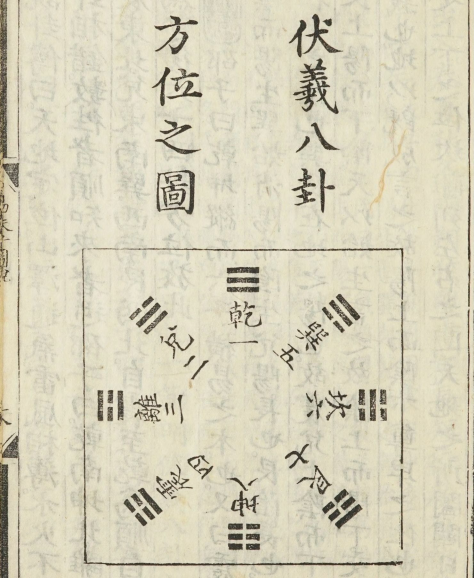 伏羲八卦
方位之圖
乾一
兌二
離三
震四
巽五
坎六
艮七
坤八